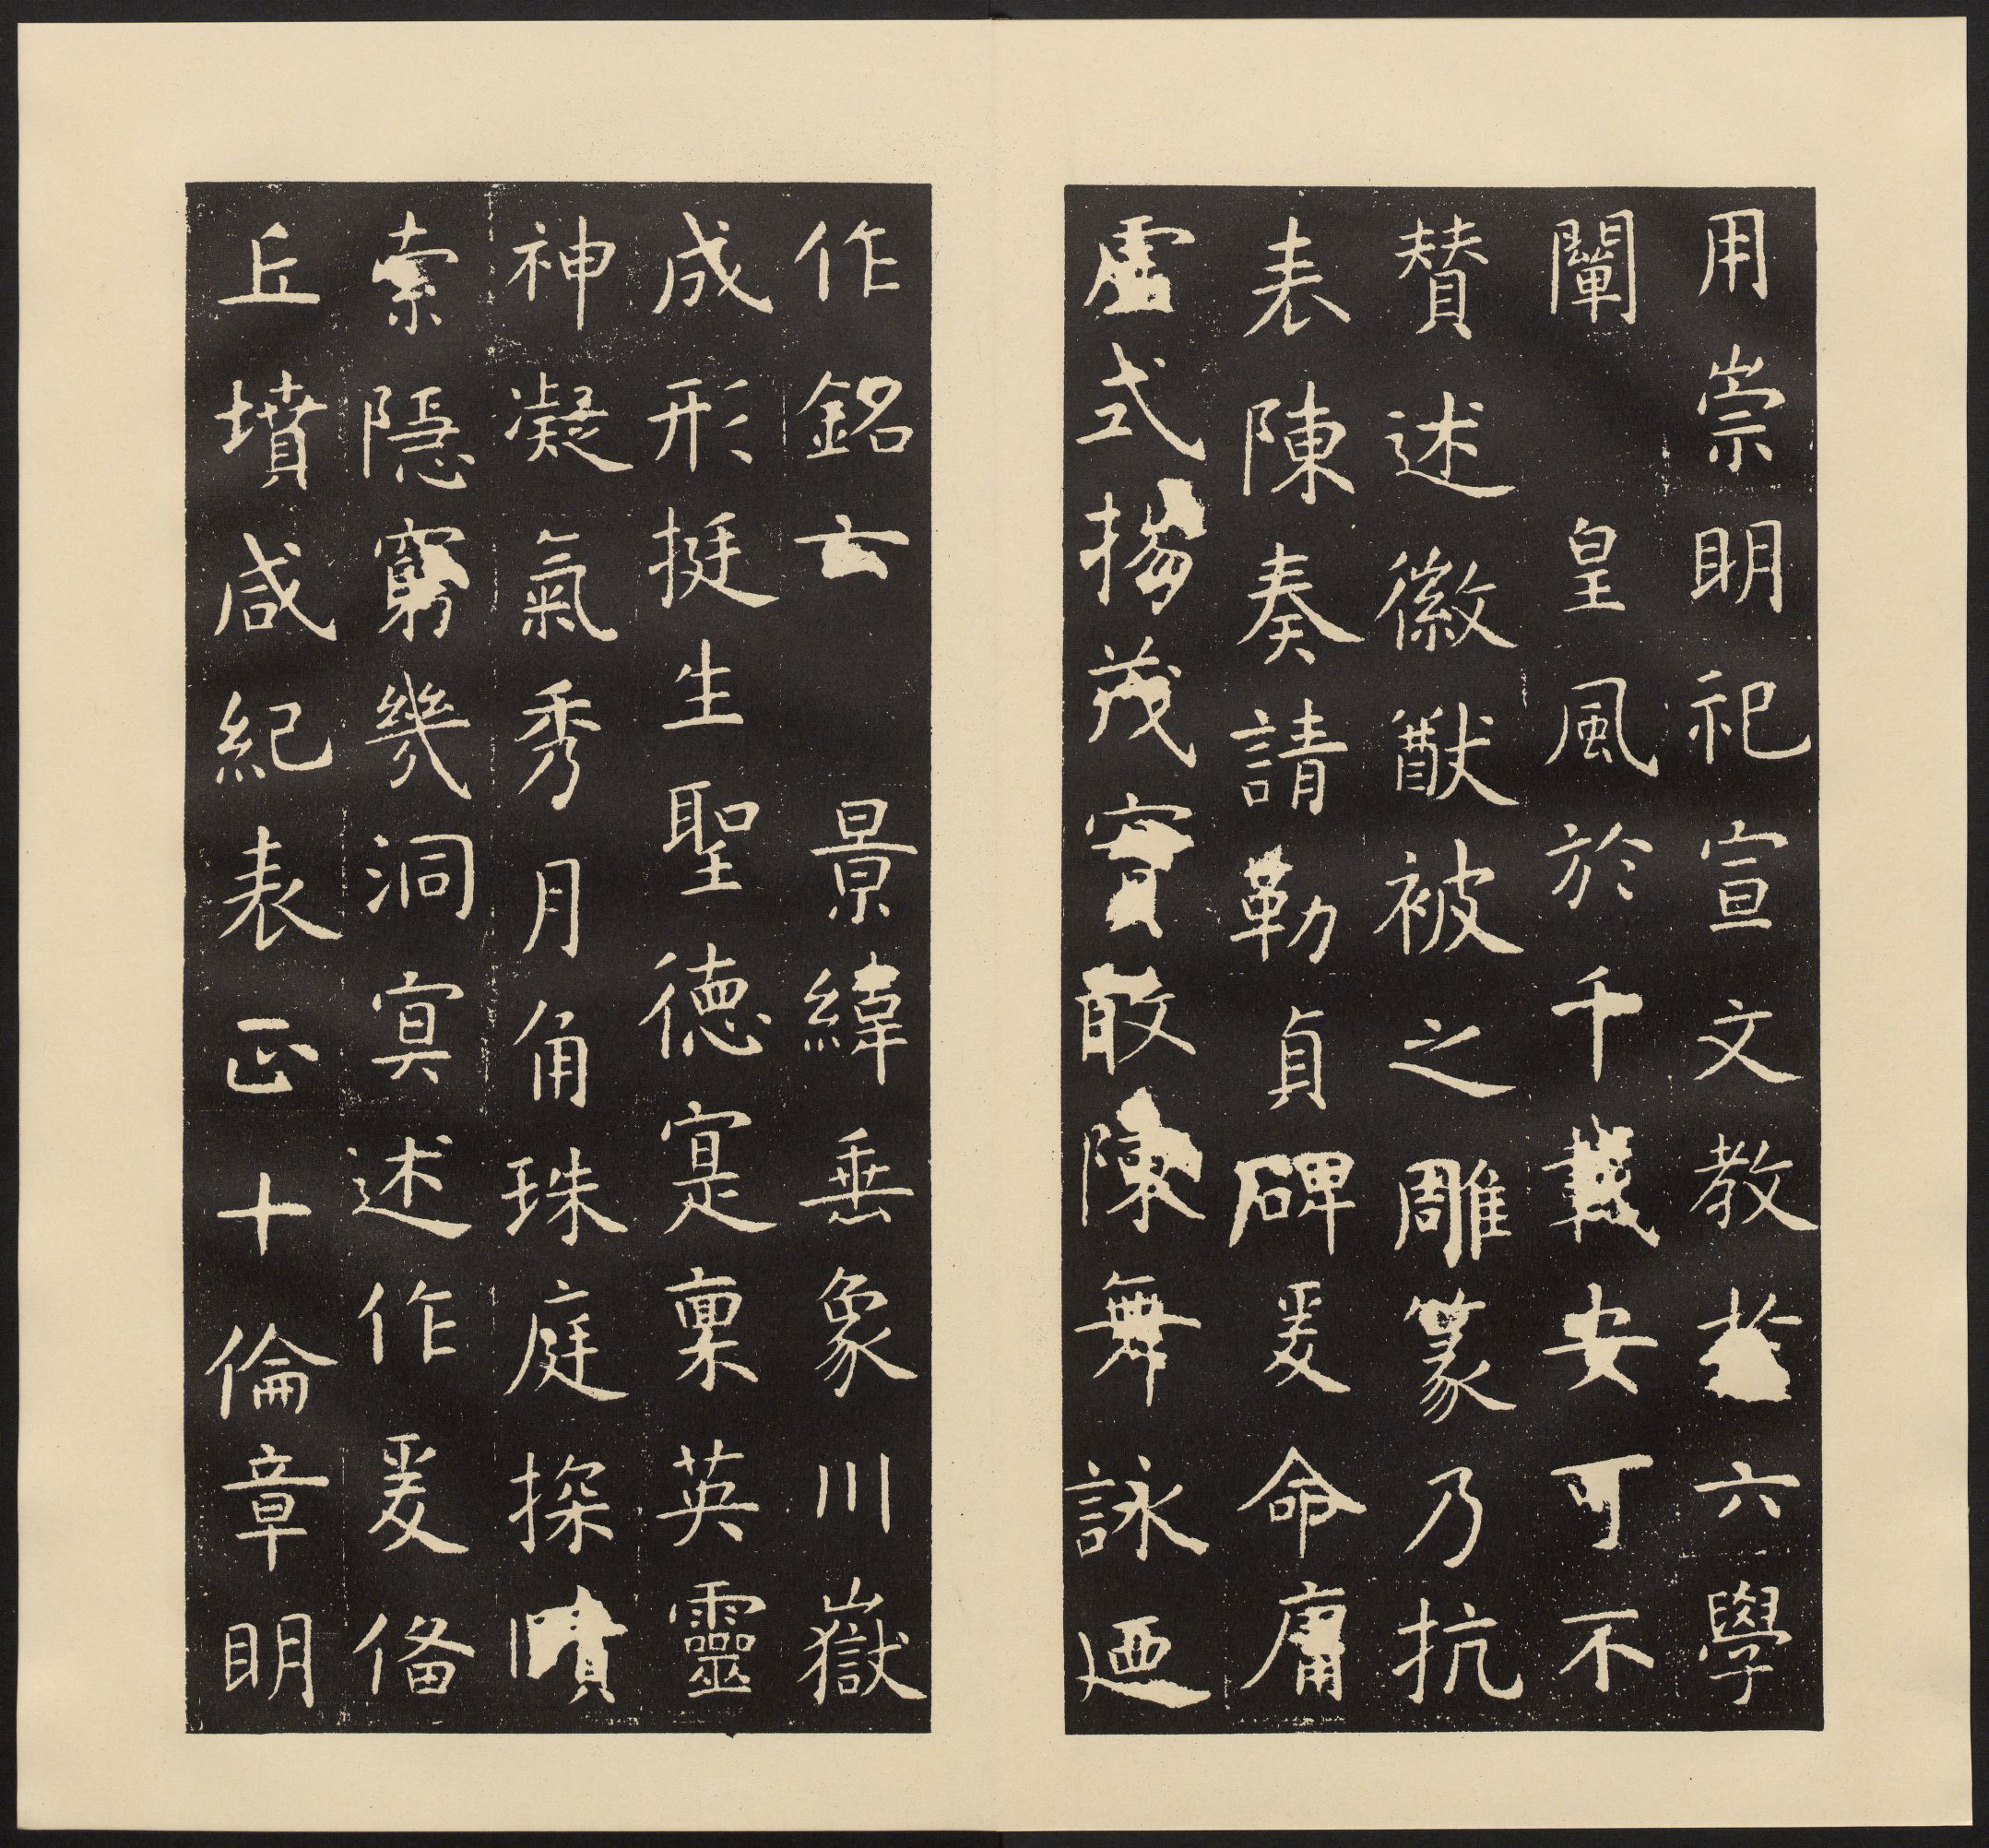 用崇明祀宣文教於六學
闡皇風於千載安可不
賛述徽猷被之雕篆乃抗
表陳奏請勒貞碑爰命庸
虛式揚茂實敢陳舞詠迺
作銘云景緯垂象川嶽
成形挺生聖德寔稟英靈
神凝氣秀月角珠庭探賾
索隱窮幾洞冥述作爰俻
丘墳咸紀表正十倫章明